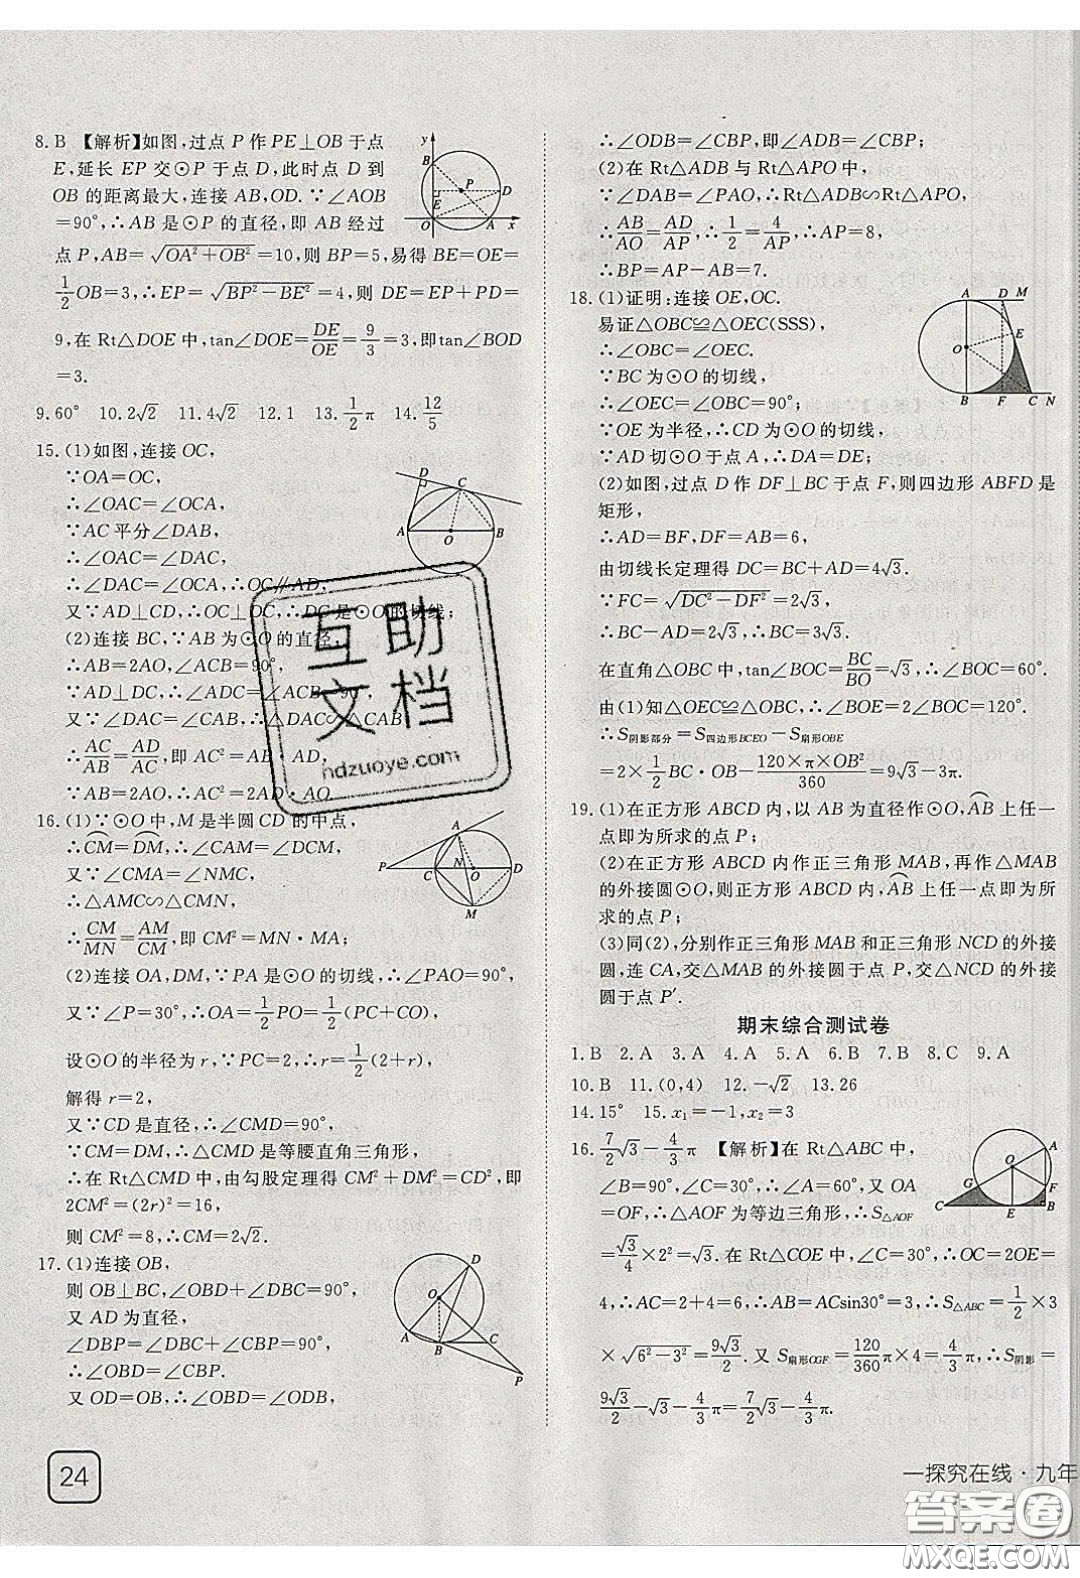 8.B 【解析】如图,过点 P 作 PE⊥OB 于点
E,延长 EP 交⊙P 于点 D,此时点 D 到
OB 的距离最大,连接 AB,OD.∵∠AOB
=90°,∴AB 是⊙P 的直径,即 AB 经过
点 P,AB=√(OA²+OB²)=10,则 BP=5,易得 BE=OE=
1/2 OB=3,∴EP=√(BP²-BE²)=4,则 DE=EP+PD=
9,在 Rt△DOE 中,tan∠DOE=DE/OE=9/3=3,即tan∠BOD
=3.
y B P D E O A x
9.60° 10.2√2 11.4√2 12.1 13.1/2 π 14.12/5
15.(1)如图,连接 OC,
∵OA=OC,
∴∠OAC=∠OCA,
∵AC 平分∠DAB,
∴∠OAC=∠DAC,
∴∠DAC=∠OCA,∴OC∥AD,
又∵AD⊥CD,∴OC⊥DC,∴DC是⊙O 的切线;
(2)连接 BC,∵AB 为⊙O 的直径,
∴AB=2AO,∠ACB=90°,
∵AD⊥DC,∴∠ADC=∠ACB=90°,
又∵∠DAC=∠CAB,∴△DAC∽△CAB,
∴AC/AB=AD/AC,即 AC²=AB·AD,
∵AB=2AO,∴AC²=2AD·AO.
D C A O B
16.(1)∵⊙O 中,M 是半圆 CD 的中点,
∴CM=DM,∴∠CAM=∠DCM,
又∵∠CMA=∠NMC,
∴△AMC∽△CMN,
∴CM/MN=AM/CM,即 CM²=MN·MA;
(2)连接 OA,DM,∵PA 是⊙O 的切线,∴∠PAO=90°,
又∵∠P=30°,∴OA=1/2 PO=1/2(PC+CO),
设⊙O 的半径为 r,∵PC=2,∴r=1/2(2+r),
解得 r=2,
又∵CD 是直径,∴∠CMD=90°,
∵CM=DM,∴△CMD 是等腰直角三角形,
∴在 Rt△CMD 中,由勾股定理得 CM²+DM²=CD²,即
2CM²=(2r)²=16,
则 CM²=8,∴CM=2√2.
A P C N O D M
17.(1)连接 OB,
则 OB⊥BC,∠OBD+∠DBC=90°,
又 AD 为直径,
∠DBP=∠DBC+∠CBP=90°,
∴∠OBD=∠CBP,
又 OD=OB,∴∠OBD=∠ODB,
D O A B C P
24
∴∠ODB=∠CBP,即∠ADB=∠CBP;
(2)在 Rt△ADB 与 Rt△APO 中,
∵∠DAB=∠PAO,∴Rt△ADB∽Rt△APO,
∴AB/AO=AD/AP,∴1/2=4/AP,∴AP=8,
∴BP=AP-AB=7.
18.(1)证明:连接 OE,OC.
易证△OBC≌△OEC(SSS),
∴∠OBC=∠OEC.
∵BC 为⊙O 的切线,
∴∠OEC=∠OBC=90°;
∵OE 为半径,∴CD 为⊙O 的切线,
∵AD 切⊙O 于点 A,∴DA=DE;
(2)如图,过点 D 作 DF⊥BC 于点 F,则四边形 ABFD 是
矩形,
∴AD=BF,DF=AB=6,
由切线长定理得 DC=BC+AD=4√3.
∵FC=√(DC²-DF²)=2√3,
∴BC-AD=2√3,∴BC=3√3.
在直角△OBC 中,tan∠BOC=BC/BO=√3,∴∠BOC=60°.
由(1)知△OEC≌△OBC,∴∠BOE=2∠BOC=120°.
∴S阴影部分=S四边形BCEO-S扇形OBE
=2×1/2 BC·OB-120×π×OB²/360=9√3-3π.
A D M E O B F C N
19.(1)在正方形 ABCD 内,以 AB 为直径作⊙O,AB 上任一
点即为所求的点 P;
(2)在正方形 ABCD 内作正三角形 MAB,再作△MAB
的外接圆⊙O,则正方形 ABCD 内,AB 上任一点即为所
求的点 P;
(3)同(2),分别作正三角形 MAB 和正三角形 NCD 的外接
圆,连 CA,交△MAB 的外接圆于点 P,交△NCD 的外接
圆于点 P′.
期末综合测试卷
1.B 2.A 3.A 4.A 5.A 6.B 7.B 8.C 9.A
10.B 11.(0,4) 12.-√2 13.26
14.15° 15.x₁=-1,x₂=3
16.7/2 √3-4/3 π 【解析】在 Rt△ABC 中,
∠B=90°,∠C=30°,∴∠A=60°,又 OA
=OF,∴△AOF 为等边三角形,∴S△AOF
=√3/4×2²=√3.在 Rt△COE 中,∠C=30°,∴OC=2OE=
4,∴AC=2+4=6,∴AB=ACsin30°=3,∴S△ABC=1/2×3
×√(6²-3²)=9√3/2.又 S扇形OGF=120/360 π×4=4/3 π,∴S阴影=
9√3/2-√3-4/3 π=7/2 √3-4/3 π.
A O G F C E B
一探究在线·九年
互助
文档
hdzuoye.com
答案圈
MXQE.COM